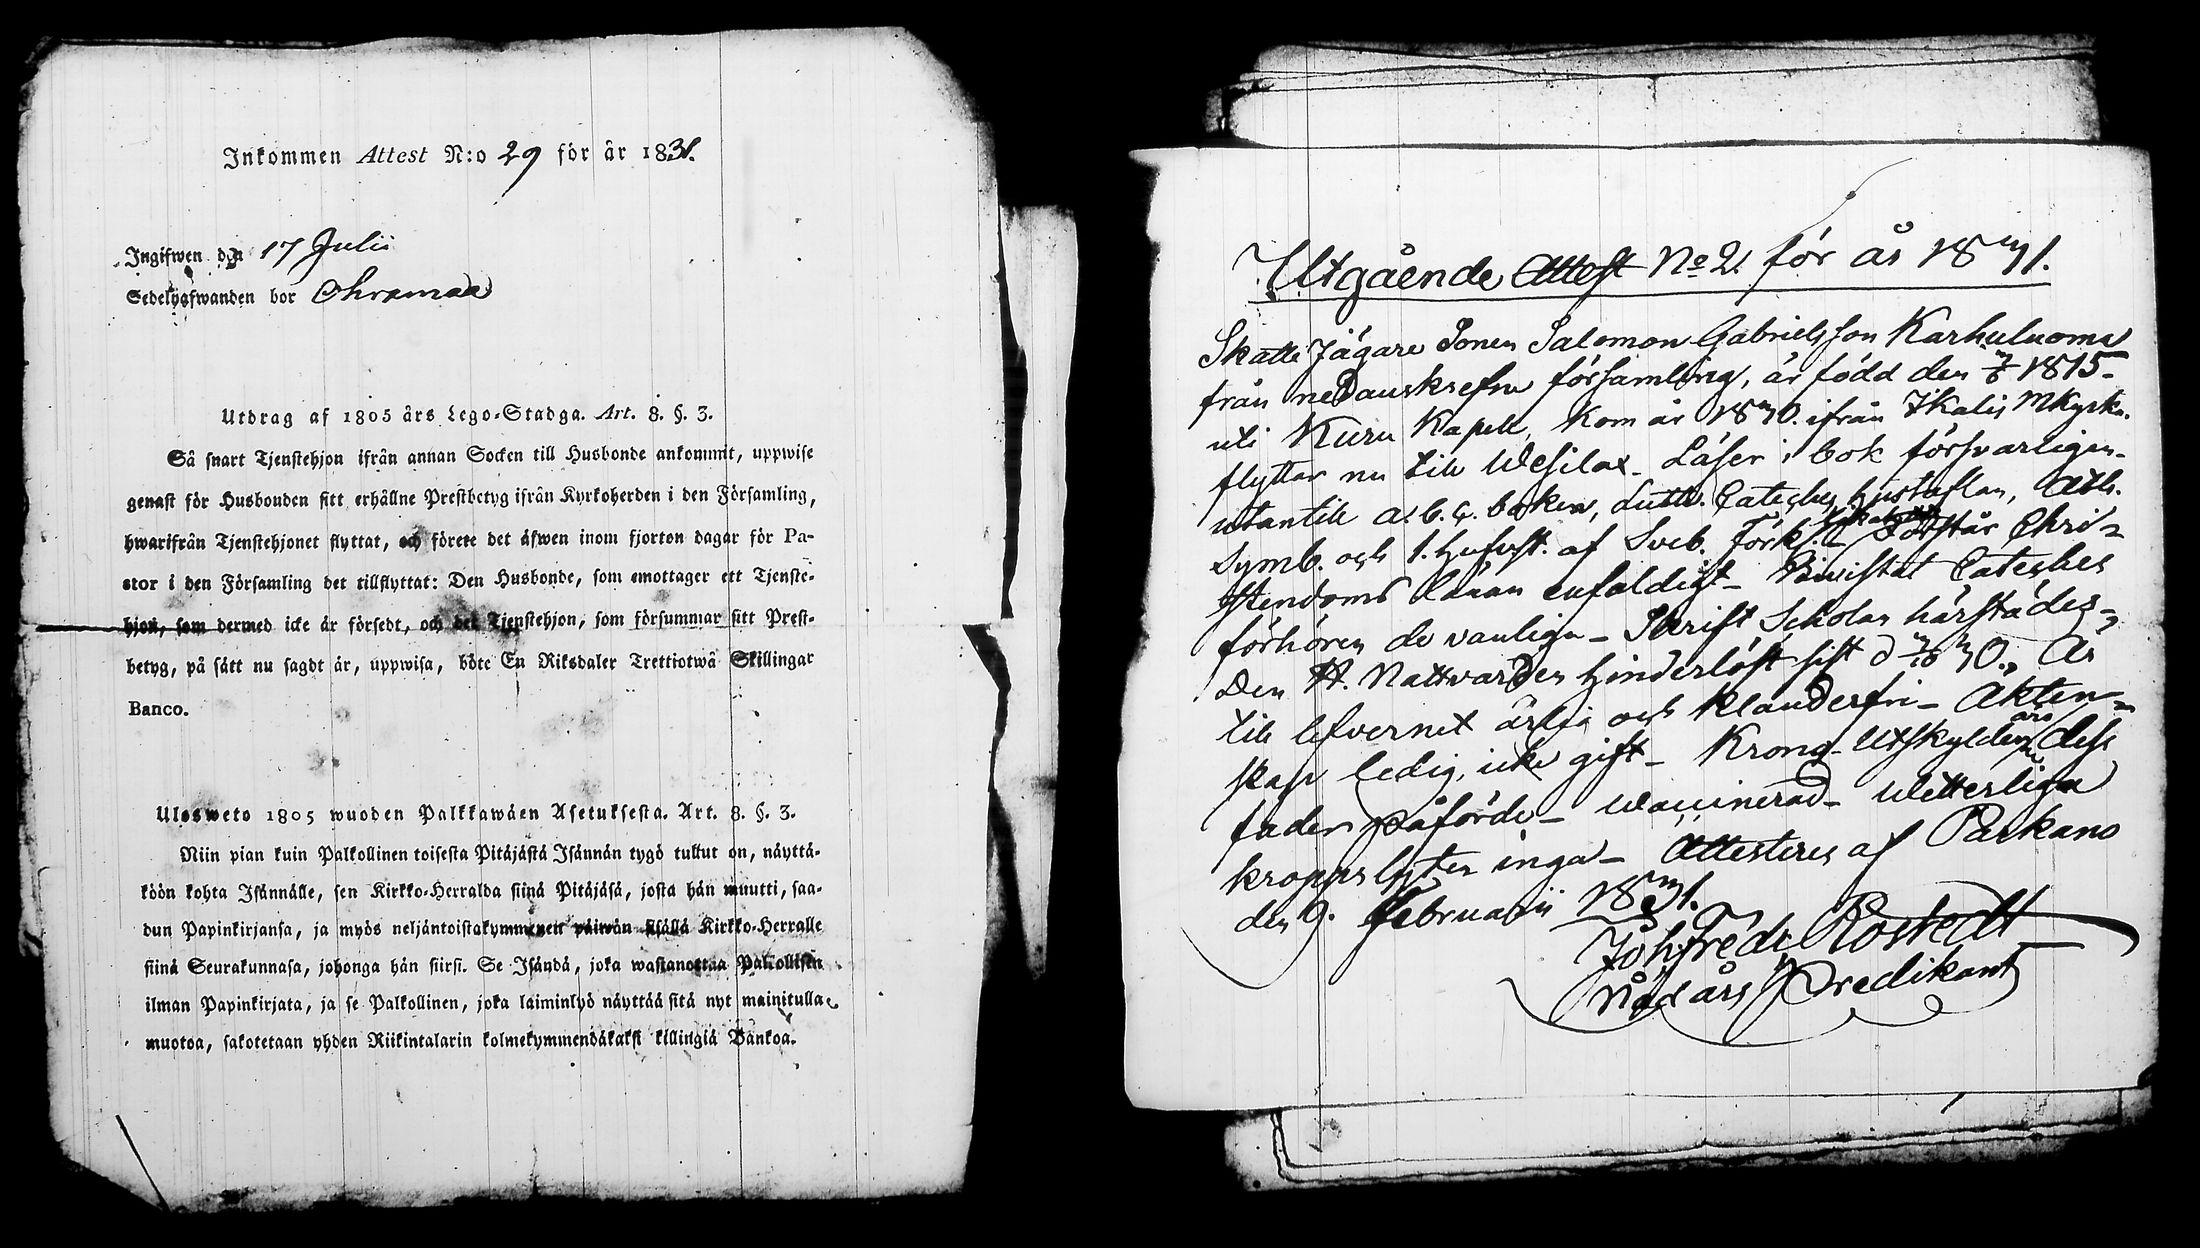 Inkommen Attest N:o 29 för år 1831.
Ingifwen den 17 Julii
Sedelgifwanden bor Ohramaa
Utdrag af 1805 års Lego-Stadga. Art. 8. §. 3.
Så snart Tjenstehjon ifrån annan Socken till Husbonde ankommit, uppwise
genast för Husbonden sitt erhållne Prestbetyg ifrån Kyrkoherden i den Församling,
hwarifrån Tjenstehjonet flyttat, och förete det äfwen inom fjorton dagar för Pa-
stor i den Församling det tillflyttat: Den Husbonde, som emottager ett Tjenste-
hjon, som dermed icke är försedt, och det Tjenstehjon, som försummar sitt Prest-
betyg, på sätt nu sagdt är, uppwisa, böte En Riksdaler Trettiotwå Skillingar
Banco.
Ulosweto 1805 wuoden Palkkawäen Asetuksesta. Art. 8. §. 3.
Niin pian kuin Palkollinen toisesta Pitäjästä Isännän tygö tullut on, näyttä-
köön kohta Isännälle, sen Kirkko-Herralda siinä Pitäjäsä, josta hän muutti, saa-
dun Papinkirjansa, ja myös neljäntoistakymmenen päiwän sisällä Kirkko-Herralle
siinä Seurakunnasa, johonga hän siirsi. Se Isändä, joka wastanottaa Palkollisen
ilman Papinkirjata, ja se Palkollinen, joka laiminlyö näyttää sitä nyt mainitulla
muotoa, sakotetaan yhden Riikintalarin kolmekymmendäkaksi killingiä Bankoa.
Utgående Attest No 2. för år 1831.
Skatte Jägare Sonen Salomon Gabrielsson Karhuluoma
från nedanskrefne församling, är född den 1815.
uti Kuru Kapell, kom år 1830. ifrån Ikalis Mkyrka.
flyttar nu till Wesilax. Läser i bok försvarligen.
utantill a.b.c. boken, Luth. Catechs, hustaflan, Ath.
Symb. och 1. hufvst. af Sveb. Förkl. Förstår Chri-
stendoms läran enfaldigt. Bivistat Cateches
förhören de vanliga. Skrift Scholan härstädes,
Den H. Nattvarden hinderlöst sist d 30. Är
till lefvernet ärlig och klanderfri. Äkten-
skap ledig, icke gift. Krono Utskylder äro dess
fader påförde. Waccinerad. Wetterliga
kroppslyten inga. Attesteres af Parkano
den 9. Februarii 1831.
Johfredr Rostedt
Nåd års Predikant